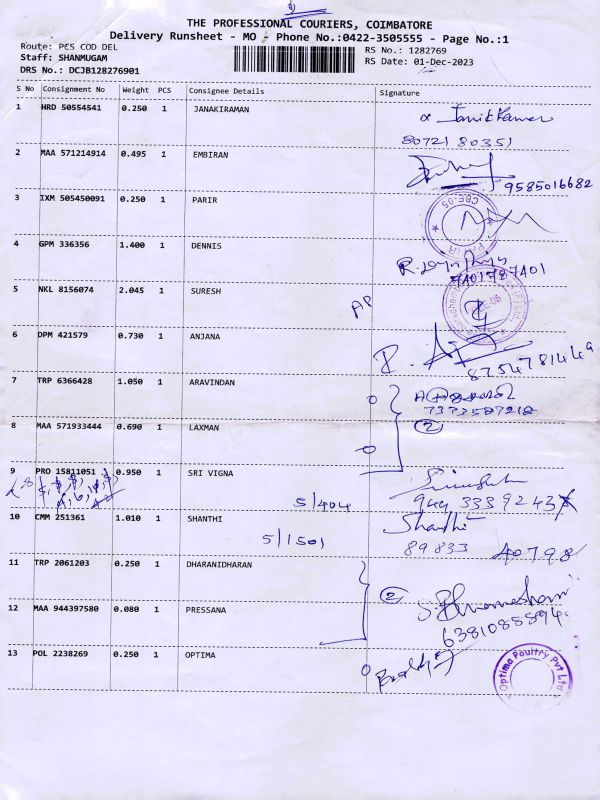 THE PROFESSIONAL COURIERS, COIMBATORE
Delivery Runsheet - MO - Phone No.:0422-3505555 - Page No.:1
Route: PCS COD DEL
RS No.: 1282769
Staff: SHANMUGAM
RS Date: 01-Dec-2023
DRS No.: DCJB128276901
S No Consignment No Weight PCS Consignee Details Signature
1 HRD 50554541 0.250 1 JANAKIRAMAN
80721 80351
2 MAA 571214914 0.495 1 EMBIRAN
9585016682
3 IXM 505450091 0.250 1 PARIR
CBE-05
4 GPM 336356 1.400 1 DENNIS
7401787401
5 NKL 8156074 2.045 1 SURESH
AP
6 DPM 421579 0.730 1 ANJANA
8754781449
7 TRP 6366428 1.050 1 ARAVINDAN
7373587218
8 MAA 571933444 0.690 1 LAXMAN
2
9 PRO 15811051 0.950 1 SRI VIGNA
5/404
944 3339243
10 CMM 251361 1.010 1 SHANTHI
Shanthi
5/1501
89833 40798
11 TRP 2061203 0.250 1 DHARANIDHARAN
2
12 MAA 944397580 0.080 1 PRESSANA
6381088894
13 POL 2238269 0.250 1 OPTIMA
Optima Poultry Pvt Ltd